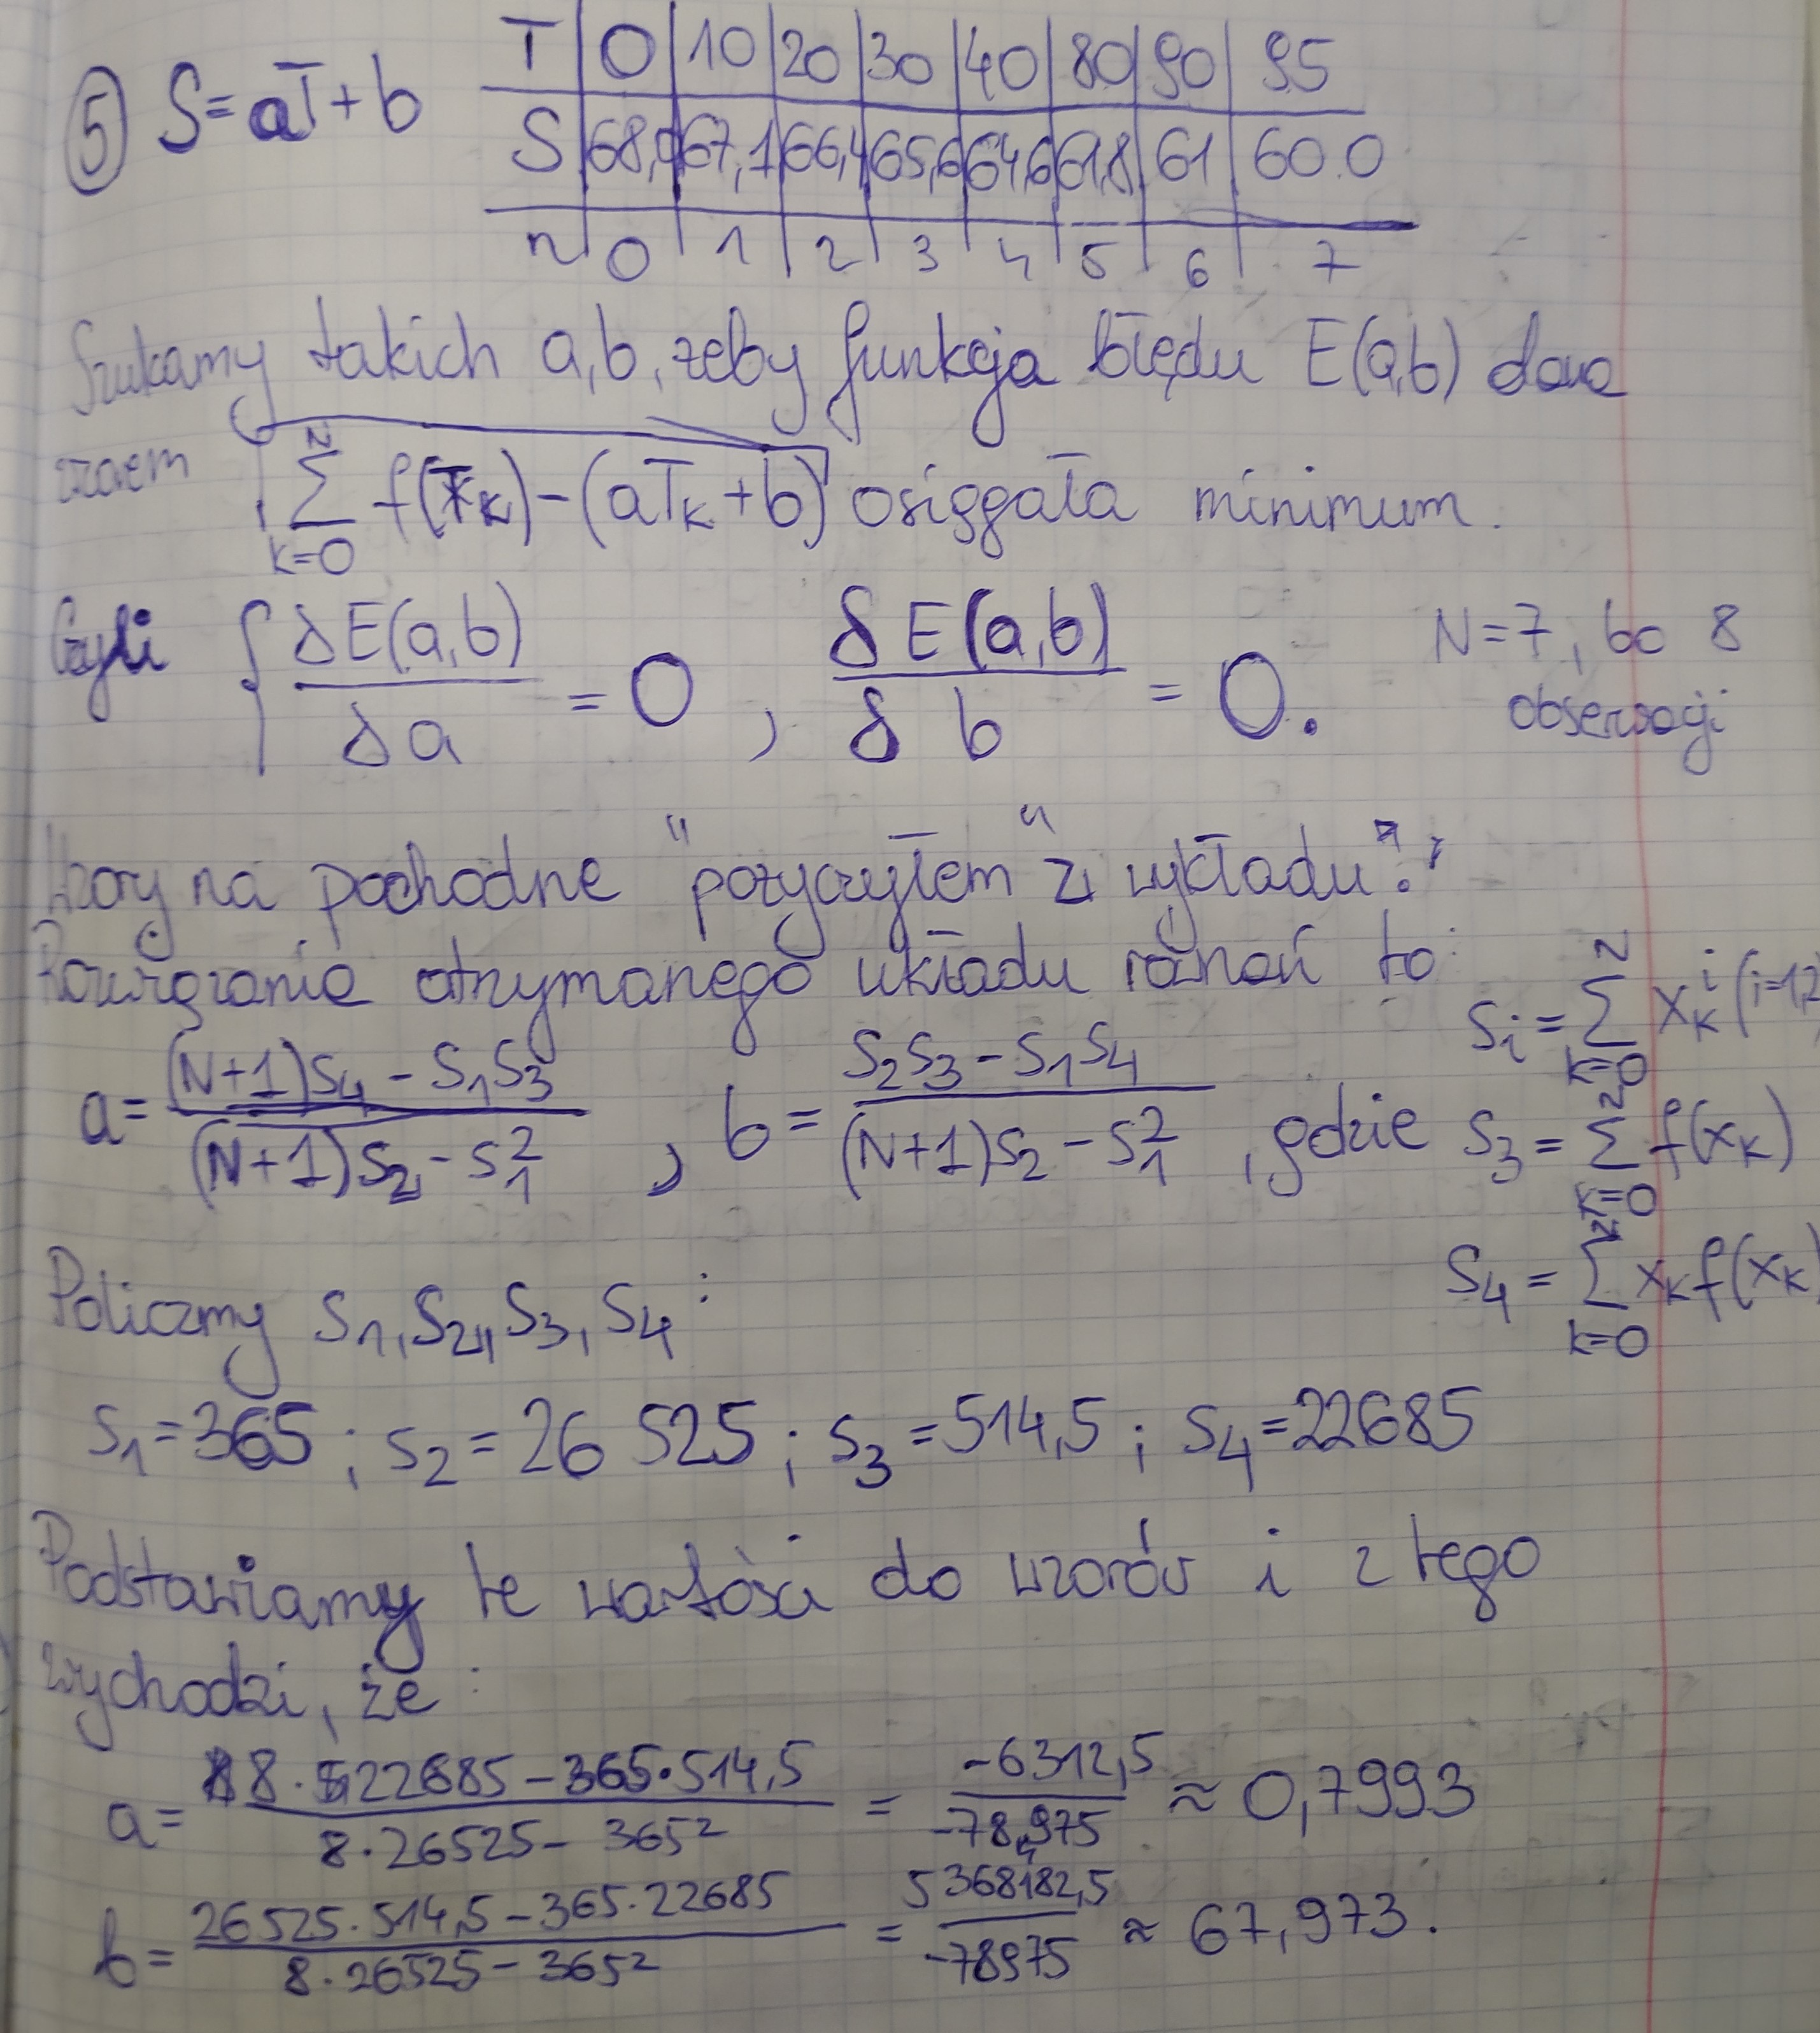 ⑤ S=aT+b
T | 0 | 10 | 20 | 30 | 40 | 80 | 90 | 95
S | 68,0 | 67,1 | 66,4 | 65,6 | 64,6 | 61,8 | 61 | 60.0
n | 0 | 1 | 2 | 3 | 4 | 5 | 6 | 7
Szukamy takich a,b, żeby funkcja błędu E(a,b) dana
wzorem √(∑_{k=0}^{N} f(T_k)-(aT_k+b)) osiągała minimum.
Czyli { δE(a,b)/δa = 0 , δE(a,b)/δb = 0. N=7, bo 8
obserwacji
Wzory na pochodne "pożyczyłem" z wykładu.
Rozwiązanie otrzymanego układu równań to:
S_i = ∑_{k=0}^{N} x_k^i (i=1,2
a = ((N+1)S_4 - S_1S_3)/((N+1)S_2 - S_1^2) , b = (S_2S_3 - S_1S_4)/((N+1)S_2 - S_1^2) , gdzie S_3 = ∑_{k=0}^{N} f(x_k)
S_4 = ∑_{k=0}^{N} x_k f(x_k)
Policzmy S_1, S_2, S_3, S_4:
S_1=365 ; S_2=26 525 ; S_3=514,5 ; S_4=22685
Podstawiamy te wartości do wzorów i z tego
wychodzi, że:
a = (8·22685-365·514,5)/(8·26525-365²) = -6312,5/-78975 ≈ 0,7993
b = (26525·514,5-365·22685)/(8·26525-365²) = 5368182,5/-78975 ≈ 67,973.